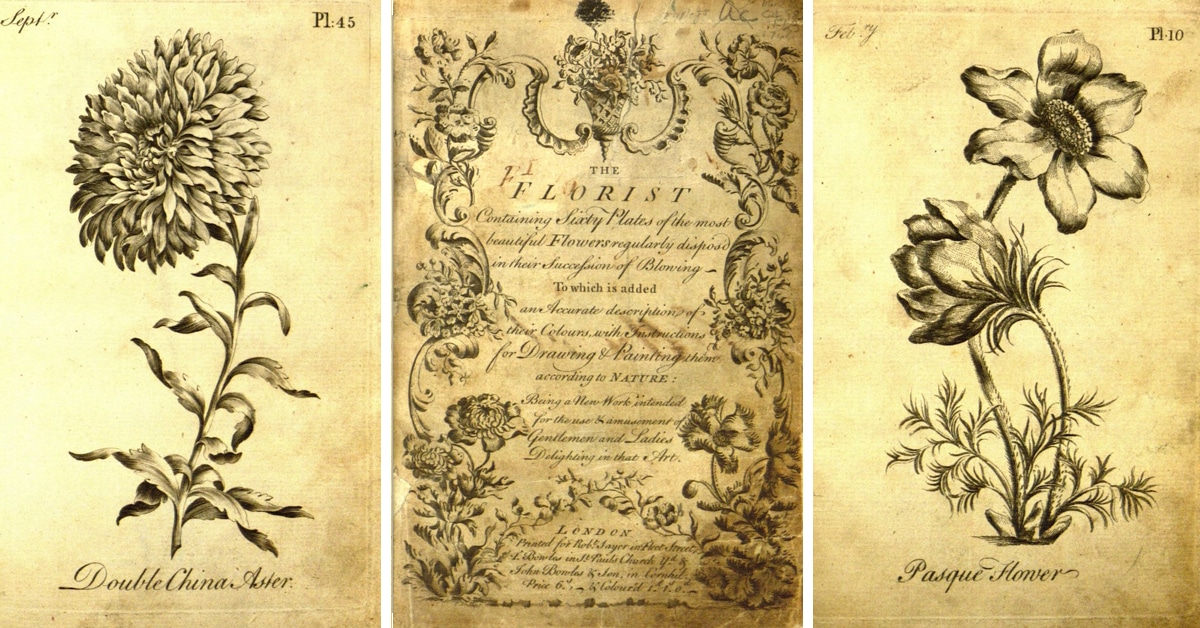 Septr
Pl:45
Double China Aster.
AC
THE
FLORIST
Containing Sixty Plates of the most
beautiful Flowers regularly dispos'd
in their Succession of Blowing
To which is added
an Accurate description of
their Colours, with Instructions
for Drawing & Painting them
according to NATURE:
Being a New Work intended
for the use & amusement of
Gentlemen and Ladies
Delighting in that Art.
LONDON
Printed for Robt. Sayer in Fleet Street,
T. Bowles in St. Pauls Church Yd. &
John Bowles & Son, in Cornhil.
Price 6s. & Colour'd
Feby
Pl.10
Pasque Flower